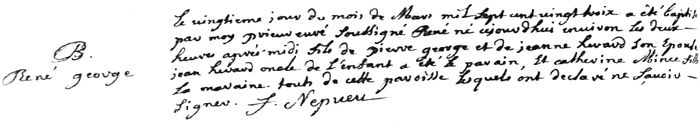 Le vingtieme jour du mois de Mars mil sept cent vingt trois a été baptisé
par moy prieur curé soussigné René né cejourdhuy environ les deux
heures après midi fils de pierre george et de jeanne huvard son Epouse
B.
René george
jean huvard oncle de L'enfant a été le parain, Et catherine Mince fille
La maraine. touts de cette paroisse lesquels ont declaré ne sçavoir
signer. f. Nepveu